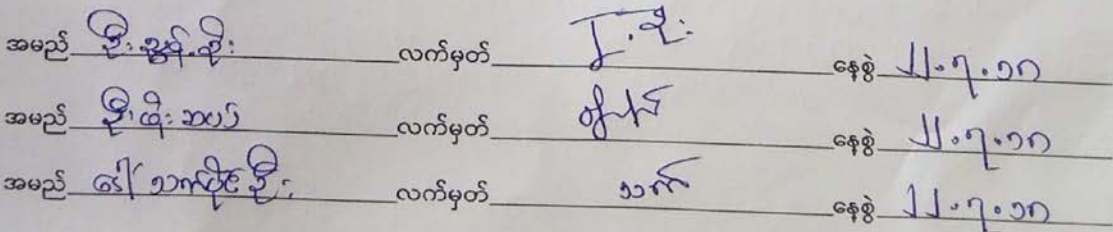 အမည် ဦးညွန့်ဦး လက်မှတ် နေ့စွဲ ၂၂.၇.၁၈
အမည် ဦးထိုးဆပ် လက်မှတ် နေ့စွဲ ၂၂.၇.၁၈
အမည် ဒေါ်သက်ပိုင်ဦး လက်မှတ် သက် နေ့စွဲ ၂၂.၇.၁၈